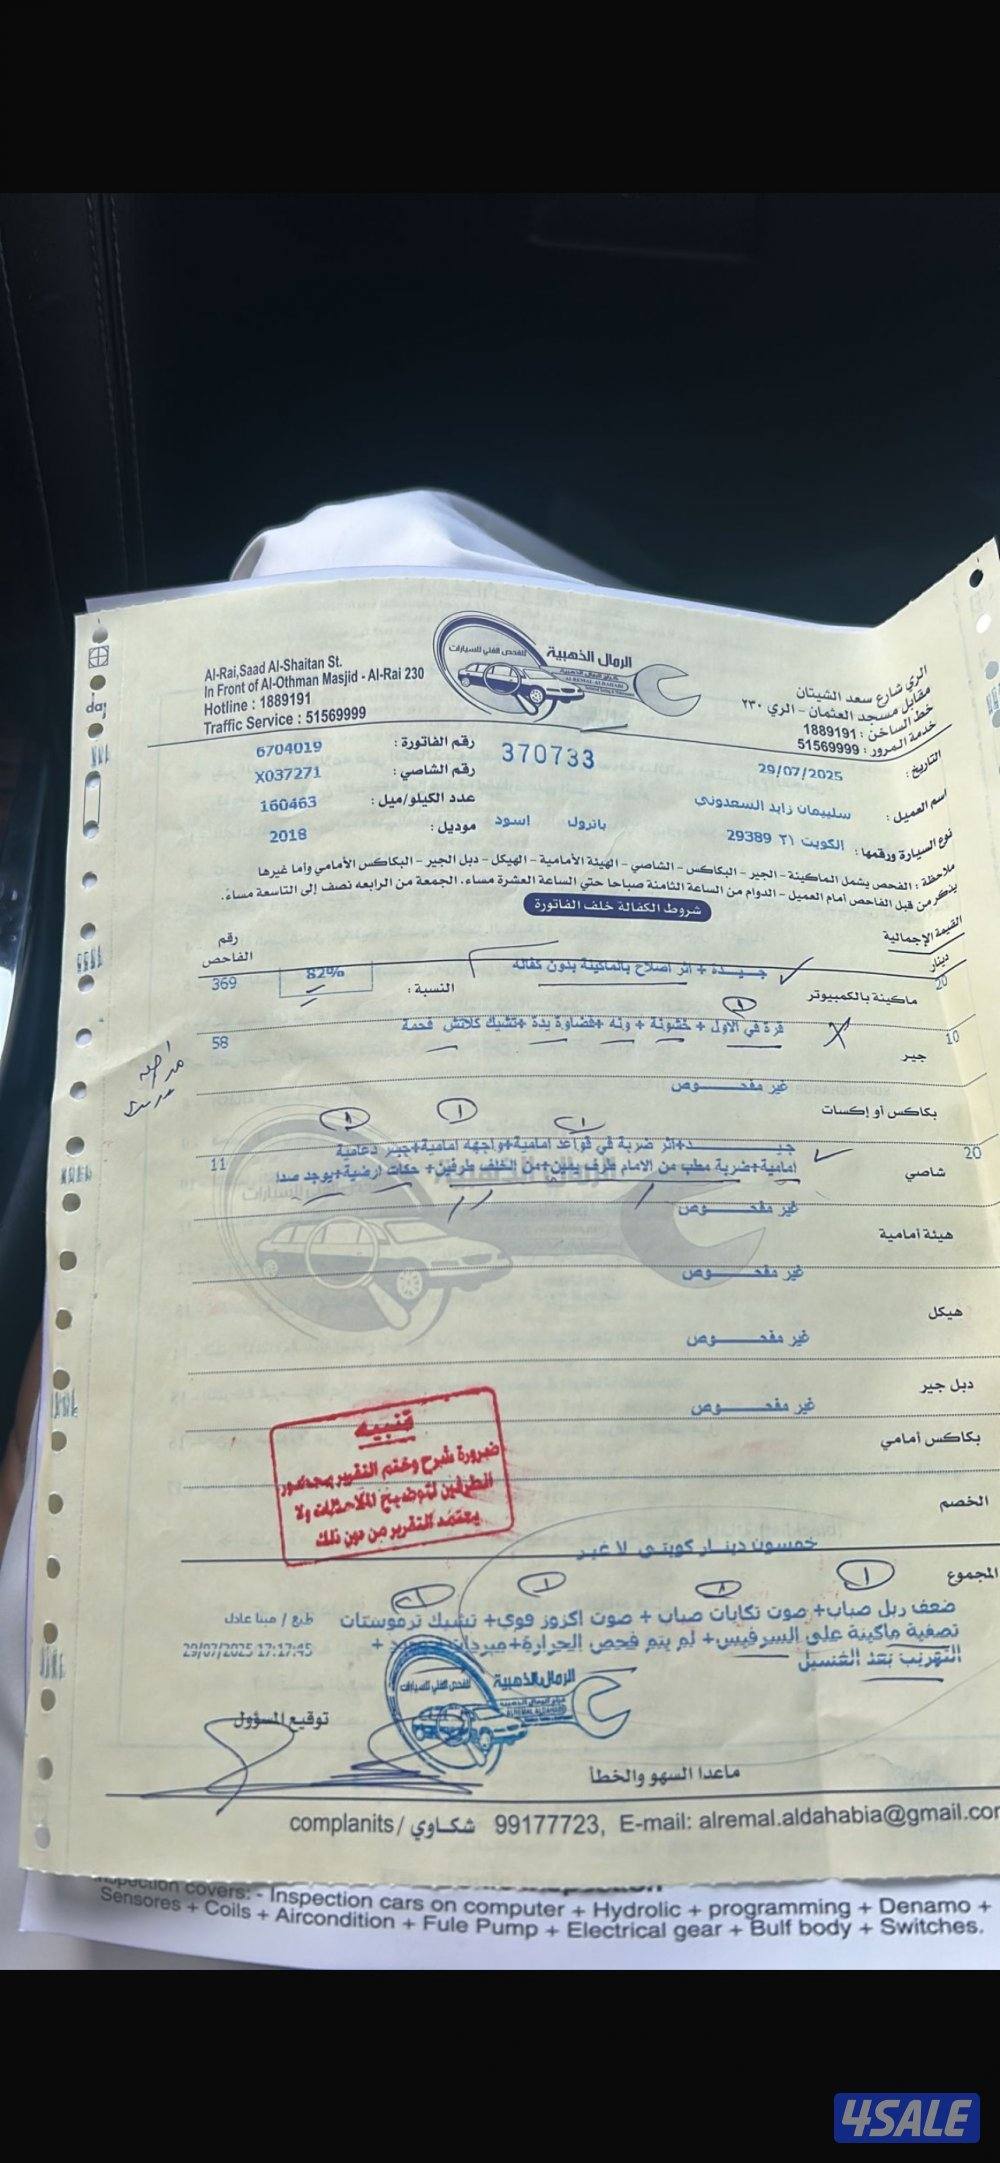 Al-Rai,Saad Al-Shaitan St.
In Front of Al-Othman Masjid - Al-Rai 230
Hotline : 1889191
Traffic Service : 51569999
الرمال الذهبية
للفحص الفني للسيارات
الري شارع سعد الشيتان
مقابل مسجد العثمان - الري ٢٣٠
خط الساخن : 1889191
خدمة المرور : 51569999
التاريخ : 29/07/2025
370733
رقم الفاتورة : 6704019
رقم الشاصي : X037271
اسم العميل : سليمان زايد السعدوني
عدد الكيلو/ميل : 160463
نوع السيارة ورقمها : الكويت ٢١ 29389 باترول اسود
موديل : 2018
ملاحظة : الفحص يشمل الماكينة - الجير - البكاكس - الشاصي - الهيئة الأمامية - الهيكل - دبل الجير - البكاكس الأمامي وأما غيرها
يذكر من قبل الفاحص أمام العميل - الدوام من الساعة الثامنة صباحا حتي الساعة العشرة مساء، الجمعة من الرابعه نصف إلى التاسعة مساء.
شروط الكفالة خلف الفاتورة
القيمة الإجمالية
دينار
رقم الفاحص
20
ماكينة بالكمبيوتر
جيـــدة + اثر اصلاح بالماكينة بدون كفالة
النسبة :
82%
369
10
جير
قزة في الاول + خشونة + ونه + قضاوة يدة +تشيك كلاتش فحمة
58
بكاكس أو إكسات
غير مفحـــــوص
20
شاصي
جيـــــد+اثر ضربة في قواعد امامية+واجهه امامية+جسر دعامية
امامية+ضربة مطب من الامام طرف يمين+من الخلف طرفين+ حكات ارضية+يوجد صدا
11
هيئة أمامية
غير مفحـــــوص
هيكل
غير مفحـــــوص
دبل جير
غير مفحـــــوص
بكاكس أمامي
غير مفحـــــوص
الخصم
تنبيه
ضرورة شرح وختم التقرير بحضور
الطرفين لتوضيح الملاحظات ولا
يعتمد التقرير من دون ذلك
المجموع
خمسون دينار كويتي لا غير
ضعف ربل صباب+ صوت تكايات صباب + صوت اكزوز قوي+ تشيك ترموستات
تصفية ماكينة على السرفيس+ لم يتم فحص الحرارة+
التهريب بعد الغسيل
طبع / مينا عادل
29/07/2025 17:17:45
الرمال الذهبية
للفحص الفني للسيارات
توقيع المسؤول
ماعدا السهو والخطأ
complanits / شكاوي 99177723, E-mail: alremal.aldahabia@gmail.com
Inspection covers: - Inspection cars on computer + Hydrolic + programming + Denamo +
Sensores + Coils + Aircondition + Fule Pump + Electrical gear + Bulf body + Switches.
4SALE